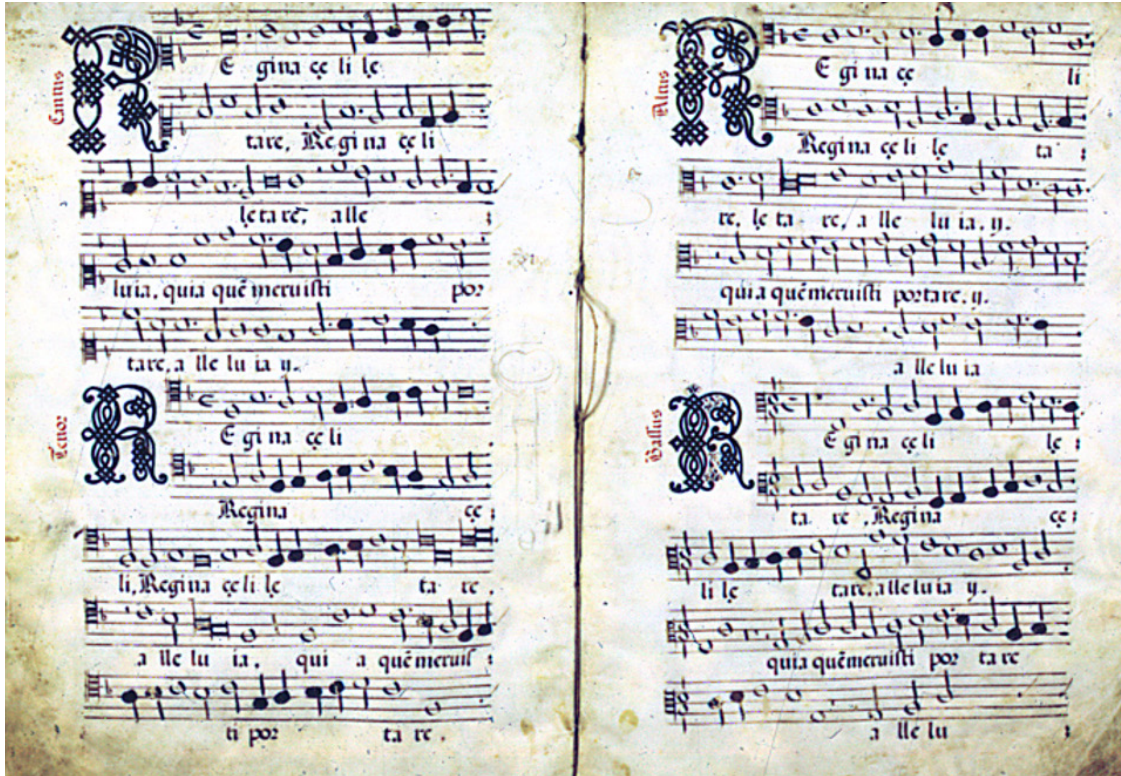 Cantus
R E gina cęli lę
tare, Regina cęli
lętarē, alle
luia, quia quē meruisti por
tare, a lle lu ia y.
Tenor
R E gi na cęli
Regina cę
li, Regina cęli lę ta re
a lle lu ia, qui a quē meruis
ti por ta re.
Altus
R E gi na cę li
Regina cęli lę ta
re, lę ta re, a lle lu ia. y.
quia quē meruisti portare. y.
a lle lu ia
Bassus
R E gi na cęli lę
ta re, Regina cę
li lę tare, alleluia y.
quia quē meruisti por ta re
a lle lu